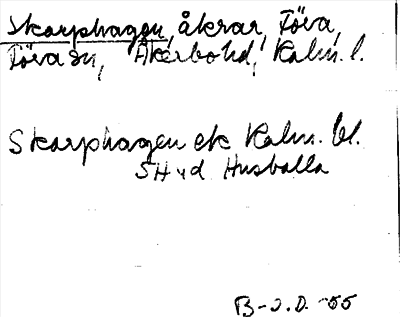 Skarphagen, åkrar, Töva,
Töva sn, Åkerbo hd, Kalm. l.
Skarphagen ek Kalm. bl.
SH vd Husballa
B-J.D. -55